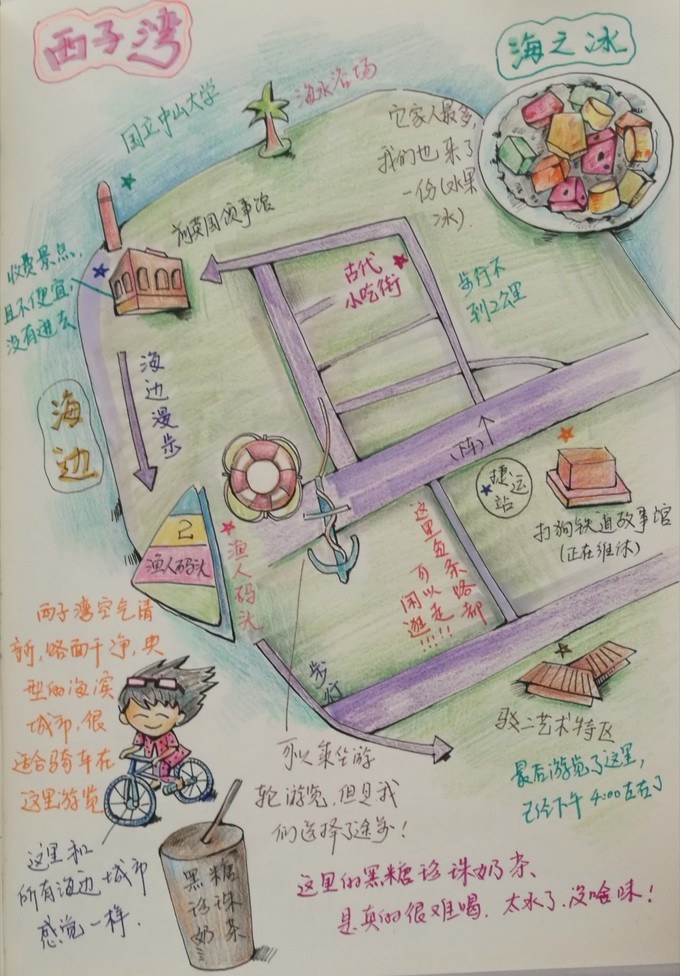 西子湾
海之冰
国立中山大学
海水浴场
它家人最多,
我们也来了
一份(水果
冰).
前英国领事馆
收费景点,
且不便宜,
没有进去
古代
小吃街
步行不
到2公里
海
边
漫
步
海
边
(下车)
捷
运
站
打狗铁道故事馆
(正在维休)
2
渔人码头
渔人码头
这里每条路都
可以走
闲逛!!!!
西子湾空气清
新,路面干净,典
型的海滨
城市,很
适合骑车在
这里游览
步行
驳二艺术特区
最后游览了这里,
已经下午4:00左右了
可以乘坐游
轮游览,但是我
们选择了徒步!
这里和
所有海边城市
感觉一样.
黑糖
珍珠
奶茶
这里的黑糖珍珠奶茶、
是真的很难喝.太水了.没啥味!